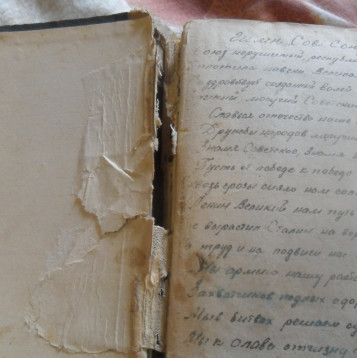 Гимн. Сов. Сою
оюз нерушимый республи
плотила навеки Велика
а здравствует созданный волей
единый, могучий Советский
Славься отечество наше
Дружбы народов надежный
Знамя Советское, знамя
Пусть от победы к победе
возь грозы сияло нам сол
Ленин Великий нам путь
с вырастил Сталин на вер
а труд и на подвиги нас
Мы армию нашу раст
Захватчиков подлых с доро
Мы в битвах решаем су
Мы к славе отчизну